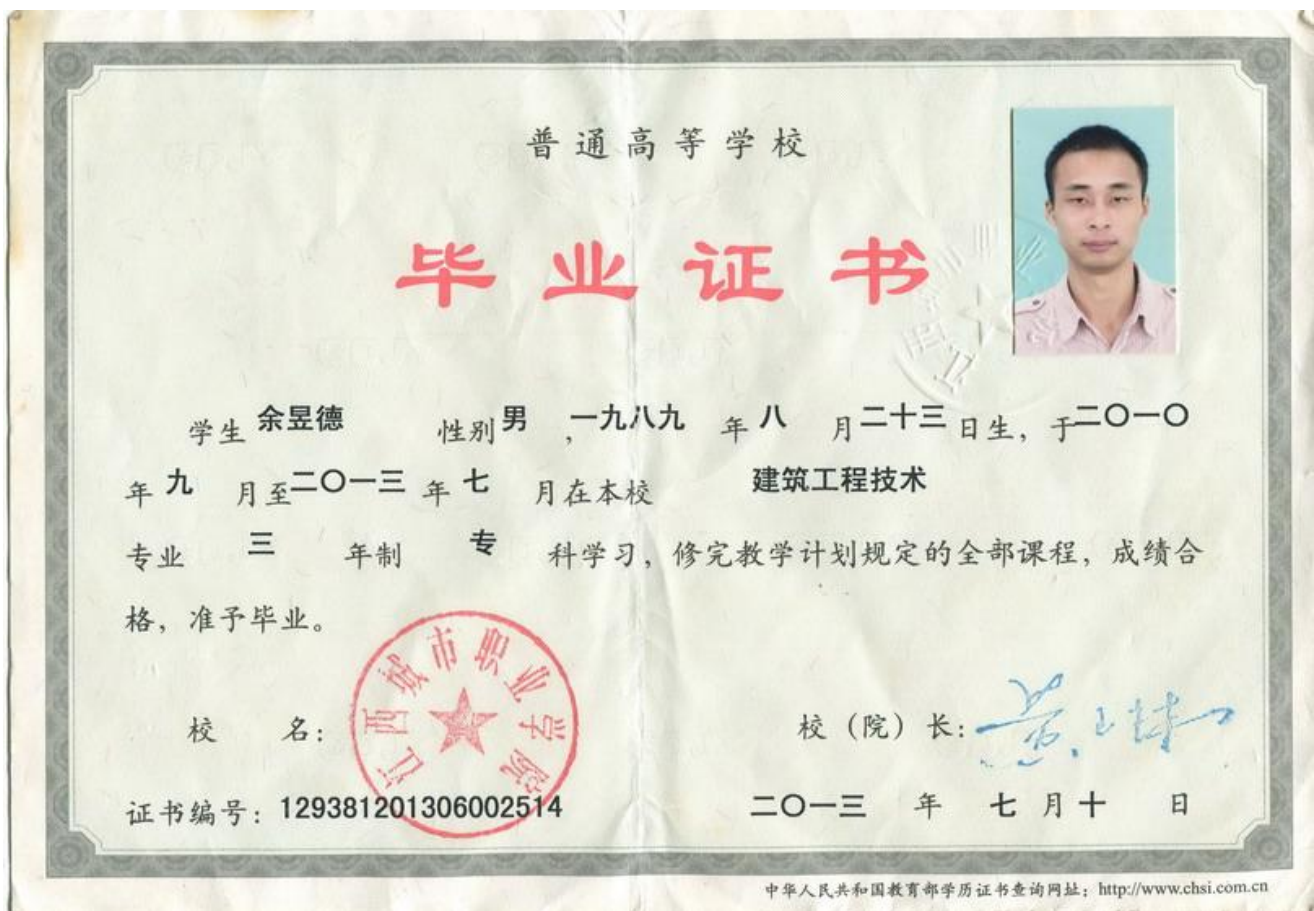 普通高等学校
毕业证书
学生 余昱德 性别 男 ,一九八九 年 八 月 二十三 日生, 于二〇一〇
年 九 月至二〇一三 年 七 月在本校 建筑工程技术
专业 三 年制 专 科学习, 修完教学计划规定的全部课程, 成绩合
格, 准予毕业。
江西城市职业学院
校 名:
校(院)长:
证书编号: 129381201306002514
二〇一三 年 七月十 日
中华人民共和国教育部学历证书查询网址: http://www.chsi.com.cn